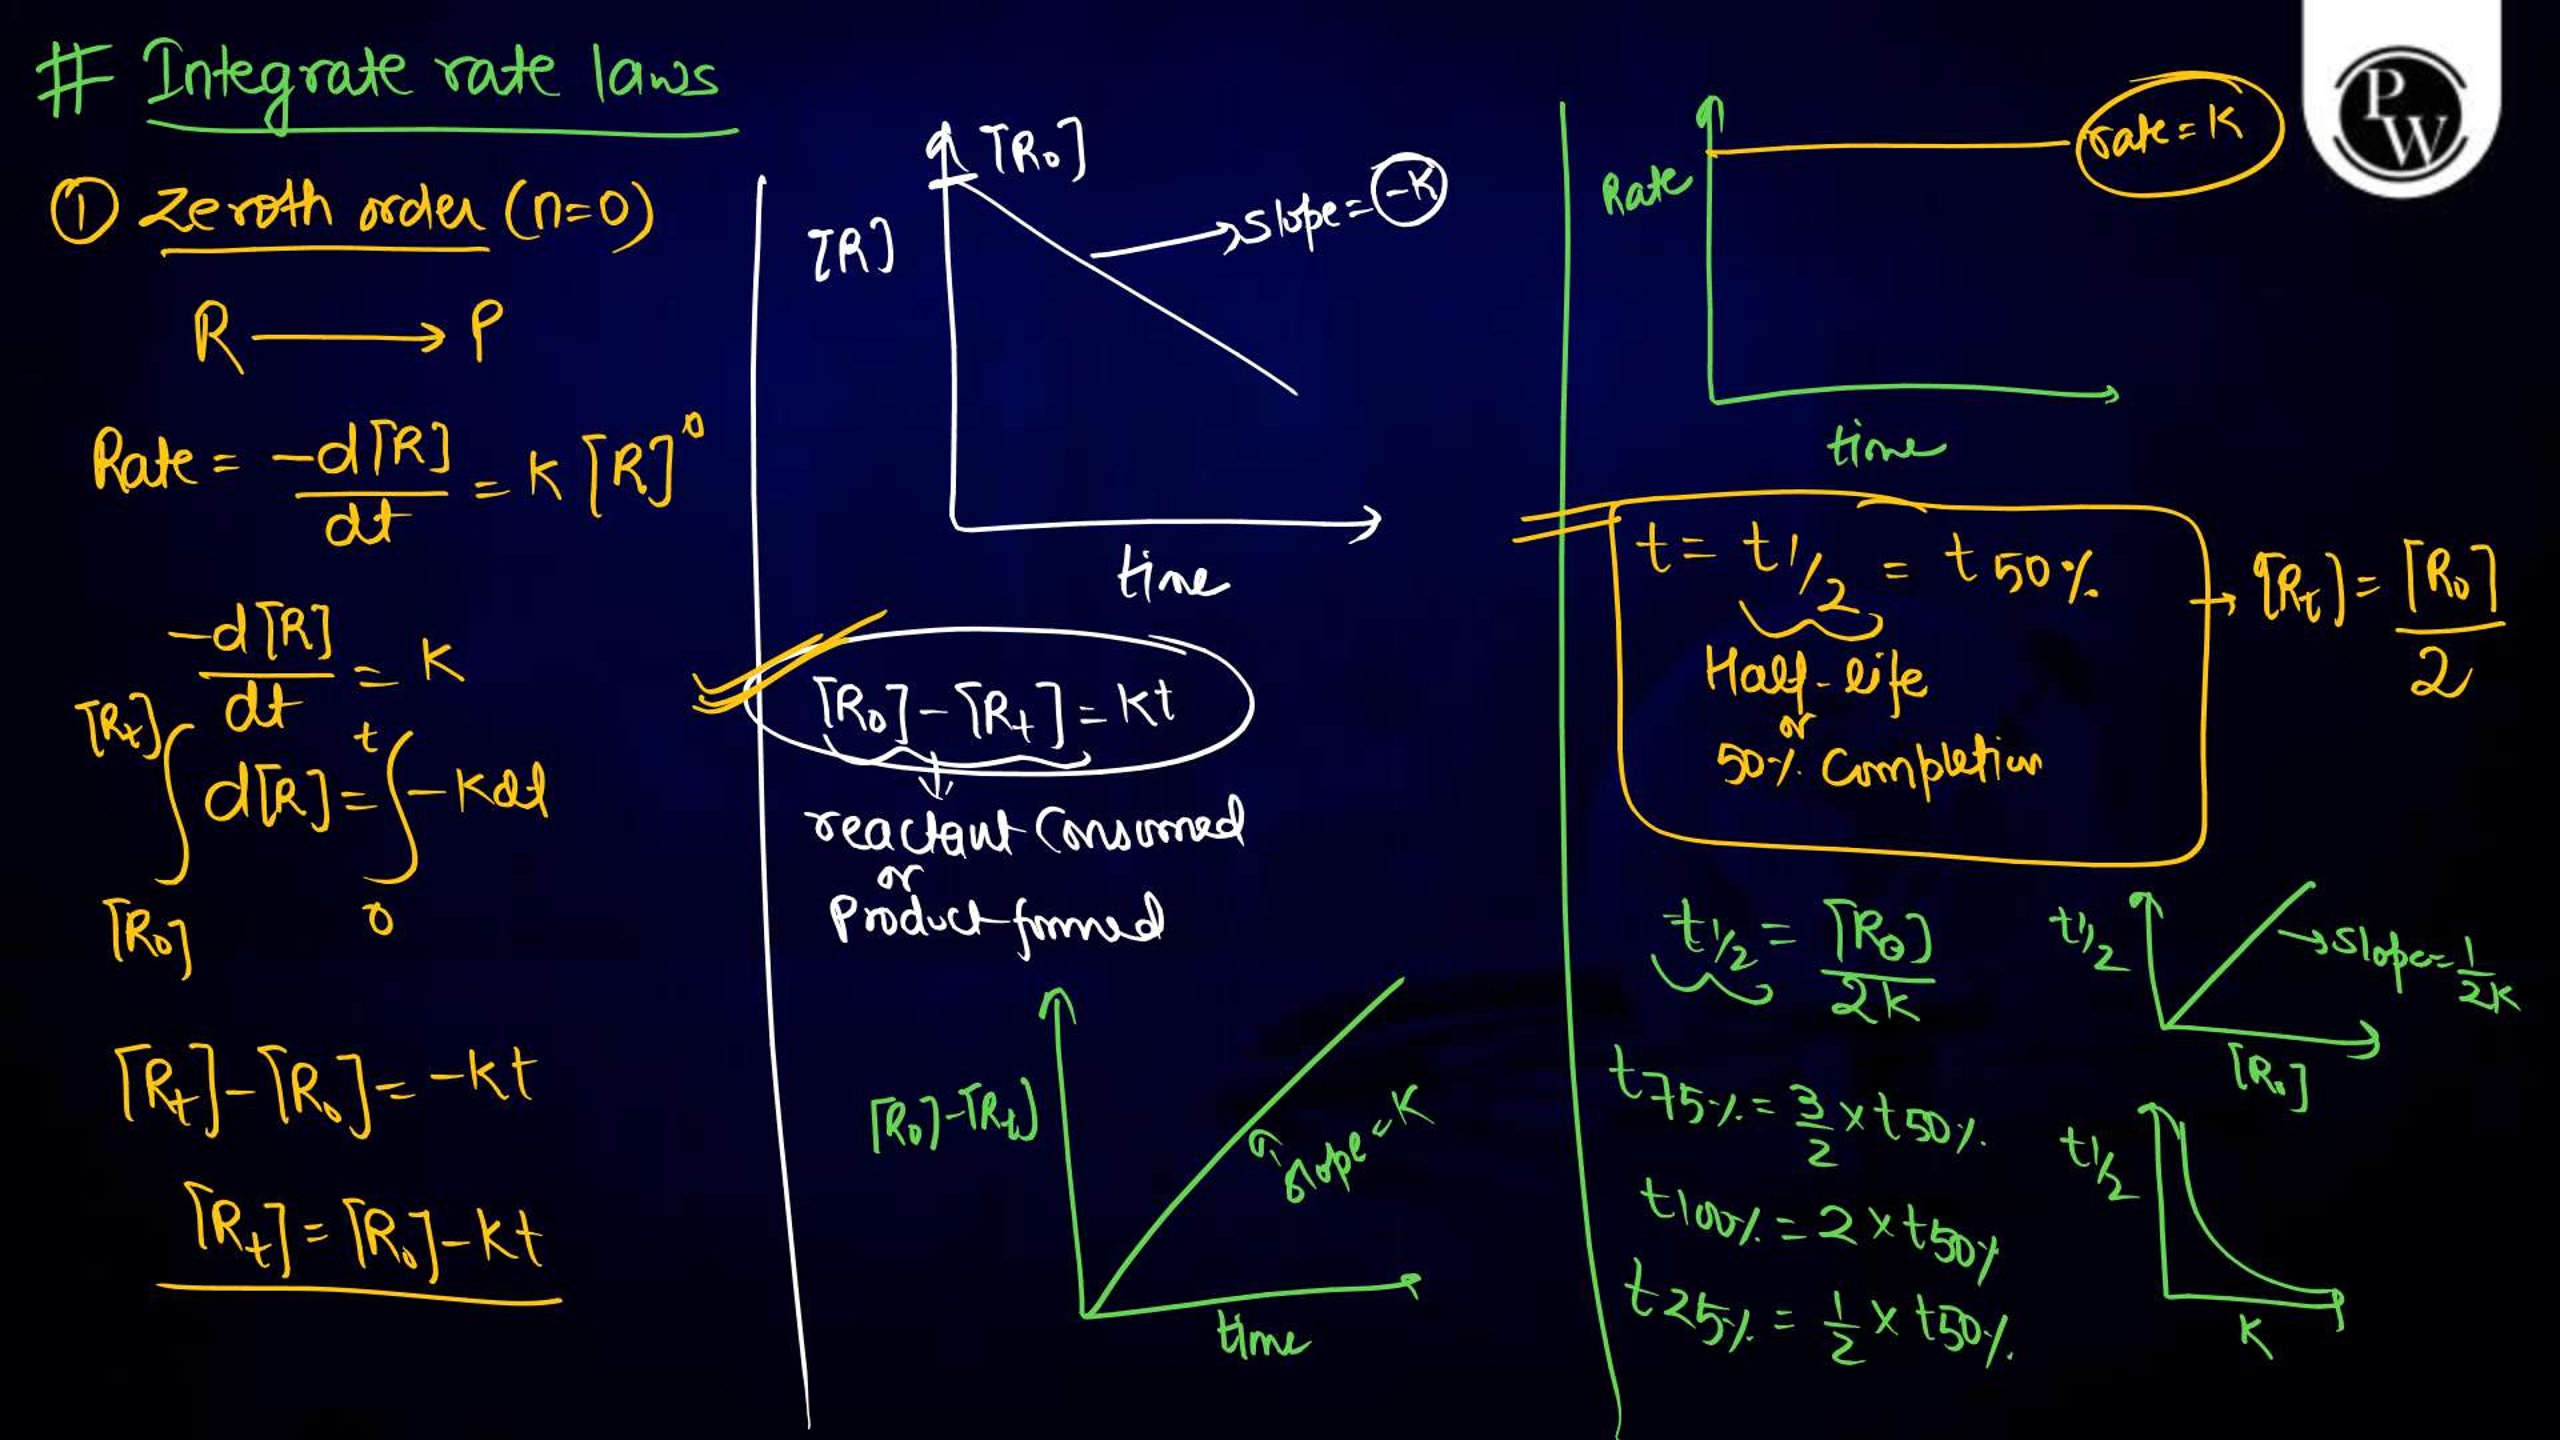 # Integrate rate laws
① Zeroth order (n=0)
R ⟶ P
Rate = -d[R]/dt = K [R]⁰
-d[R]/dt = K
[Rt] t
∫ d[R] = ∫ -Kdt
[R₀] 0
[Rt] - [R₀] = -Kt
[Rt] = [R₀] - Kt
[R₀]
[R]
slope = -K
time
[R₀] - [Rt] = Kt
reactant Consumed
or
Product formed
[R₀]-[Rt]
slope = K
time
rate = K
Rate
time
t = t1/2 = t50%
Half-life
or
50% Completion
→ [Rt] = [R₀]/2
t1/2 = [R₀]/2K
t1/2
→ slope = 1/2K
[R₀]
t75% = 3/2 × t50%
t100% = 2 × t50%
t25% = 1/2 × t50%
t1/2
K
PW